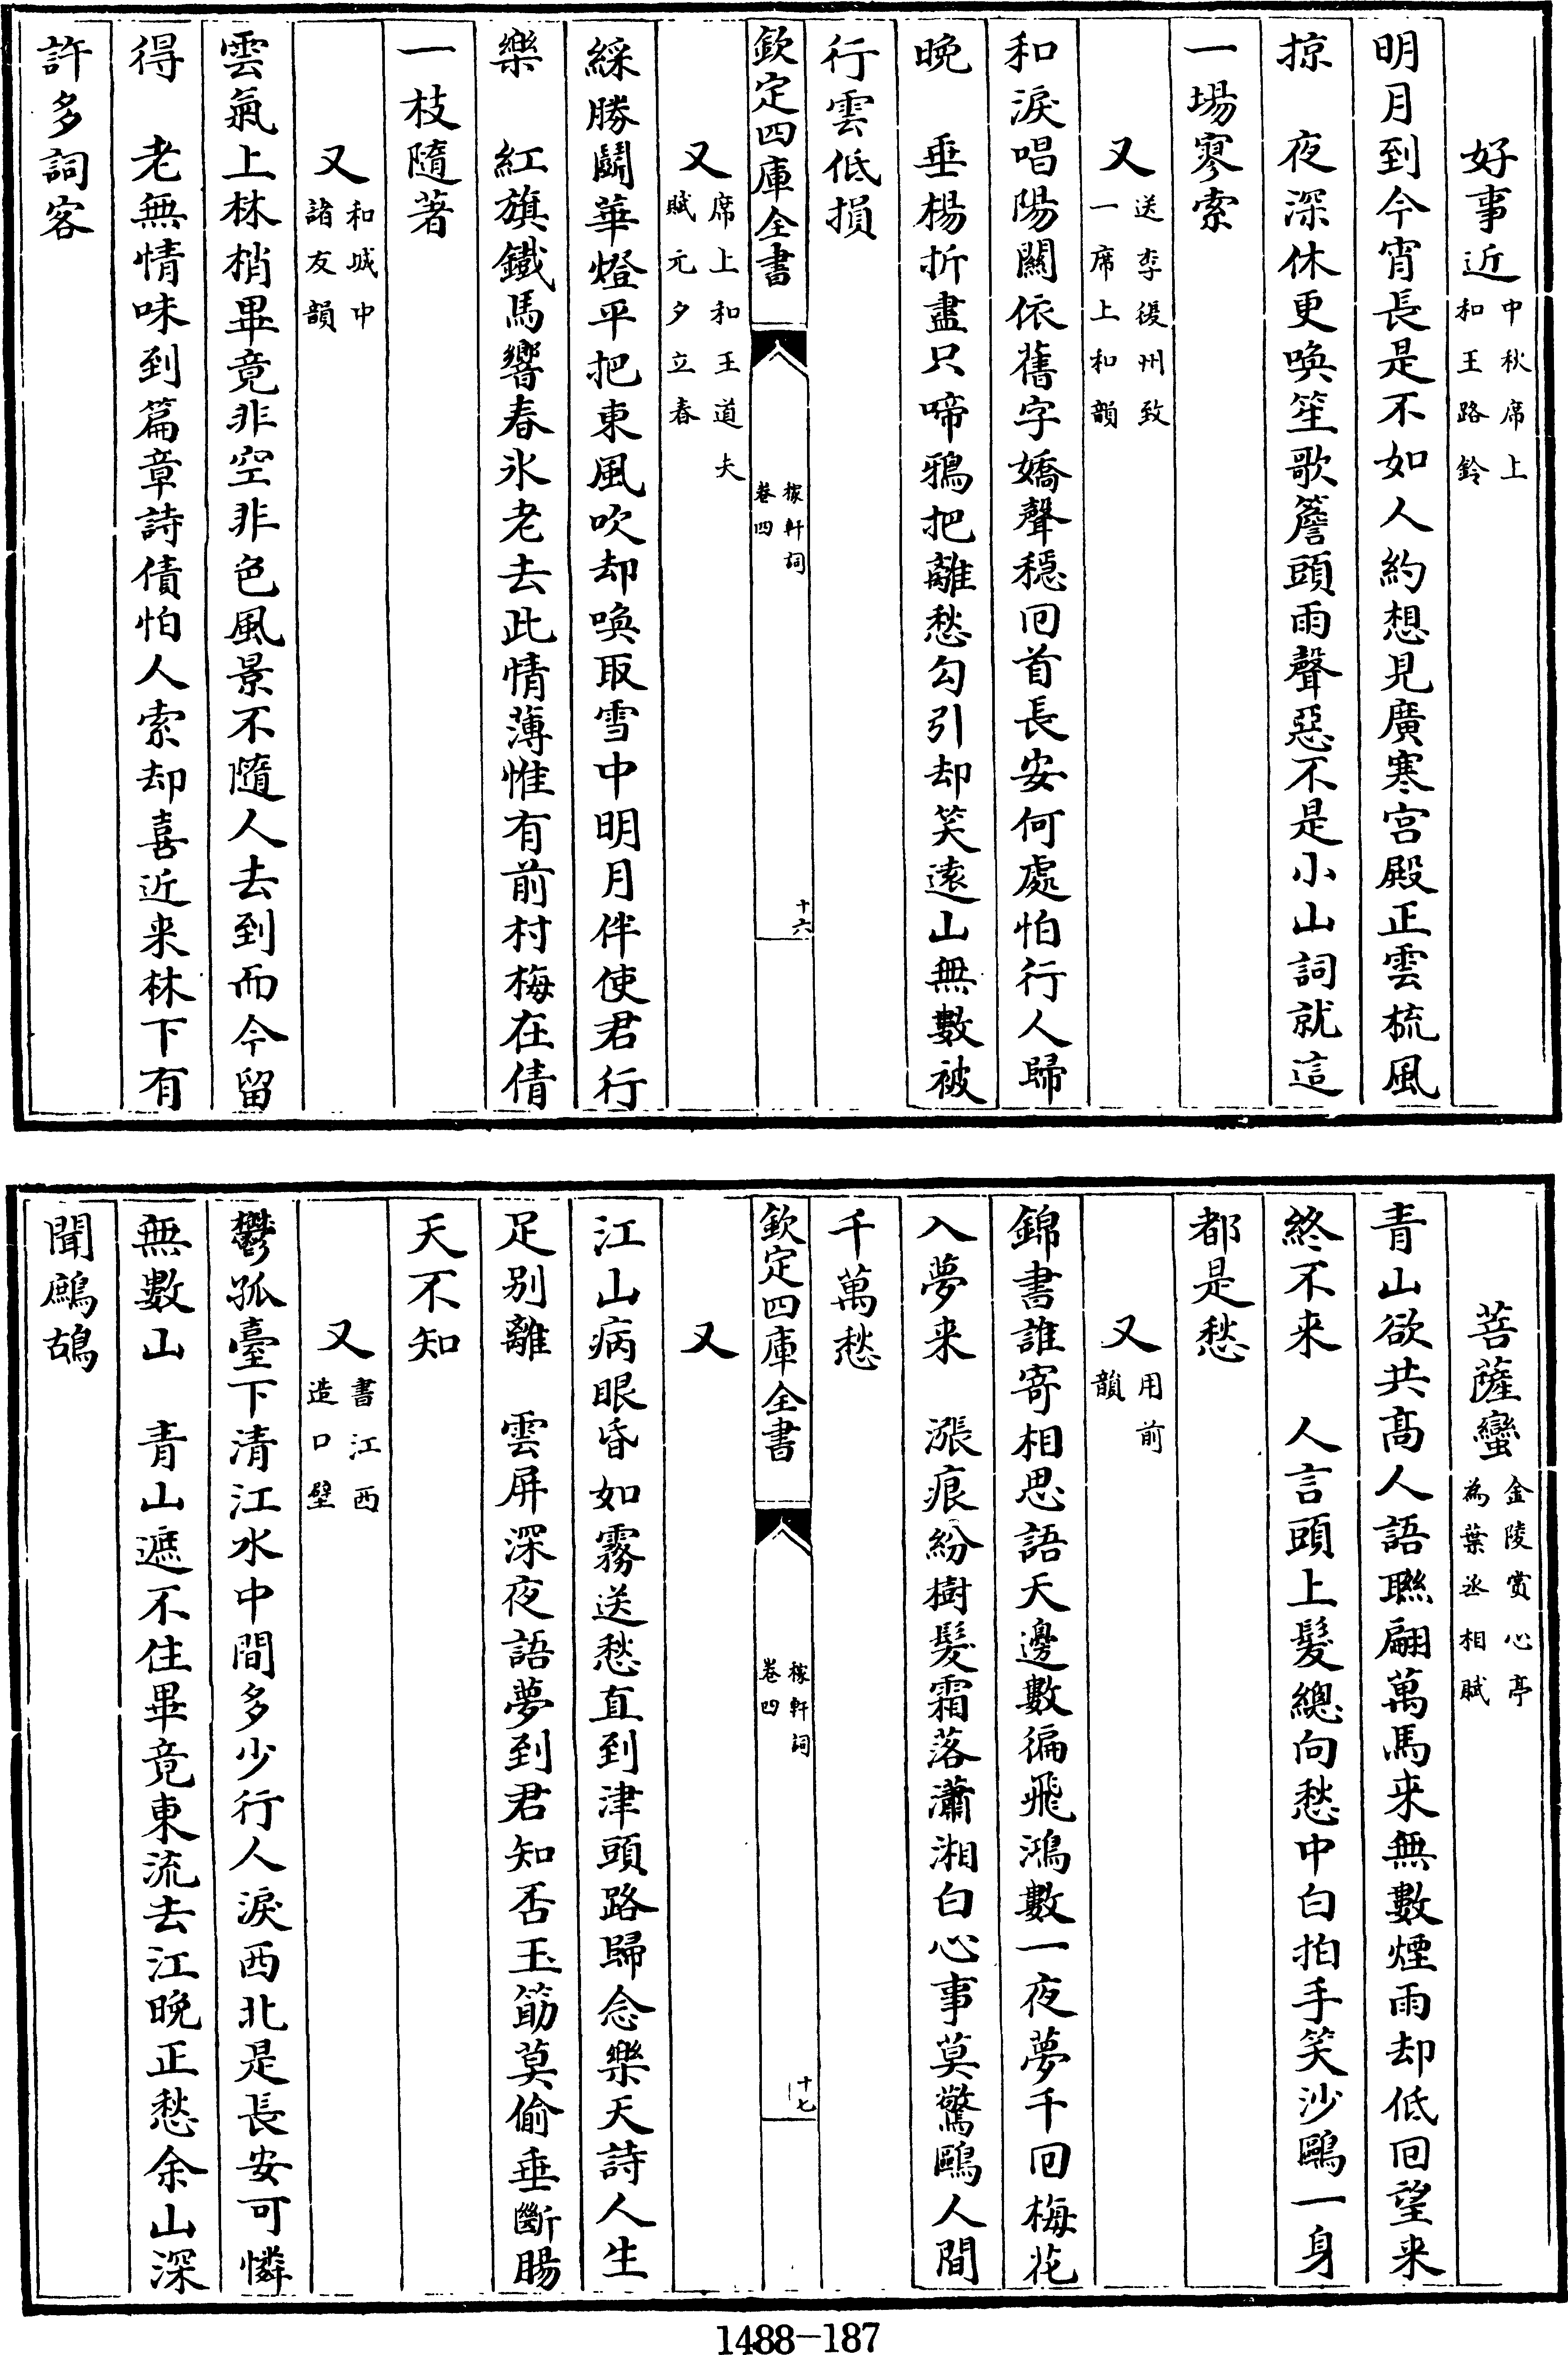 好事近中秋席上和王路鈐
明月到今宵長是不如人約想見廣寒宮殿正雲梳風
掠　夜深休更喚笙歌簷頭雨聲惡不是小山詞就這
一場寥索
又送李復州致一席上和韻
和淚唱陽關依舊字嬌聲穩回首長安何處怕行人歸
晚　垂楊折盡只啼鴉把離愁勾引却笑遠山無數被
行雲低損
欽定四庫全書
稼軒詞
卷四
十六
又席上和王道夫賦元夕立春
綵勝鬭華燈平把東風吹却喚取雪中明月伴使君行
樂　紅旗鐵馬響春氷老去此情薄惟有前村梅在倩
一枝隨著
又和城中諸友韻
雲氣上林梢畢竟非空非色風景不隨人去到而今留
得　老無情味到篇章詩債怕人索却喜近来林下有
許多詞客
菩薩蠻金陵賞心亭為葉丞相賦
青山欲共高人語聯翩萬馬来無數煙雨却低回望来
終不来　人言頭上髮總向愁中白拍手笑沙鷗一身
都是愁
又用前韻
錦書誰寄相思語天邊數徧飛鴻數一夜夢千回梅花
入夢来　漲痕紛樹髮霜落瀟湘白心事莫驚鷗人間
千萬愁
欽定四庫全書
稼軒詞
卷四
十七
又
江山病眼昏如霧送愁直到津頭路歸念樂天詩人生
足别離　雲屏深夜語夢到君知否玉筯莫偷垂斷腸
天不知
又書江西造口壁
鬱孤臺下清江水中間多少行人淚西北是長安可憐
無數山　青山遮不住畢竟東流去江晚正愁余山深
聞鷓鴣
1488—187